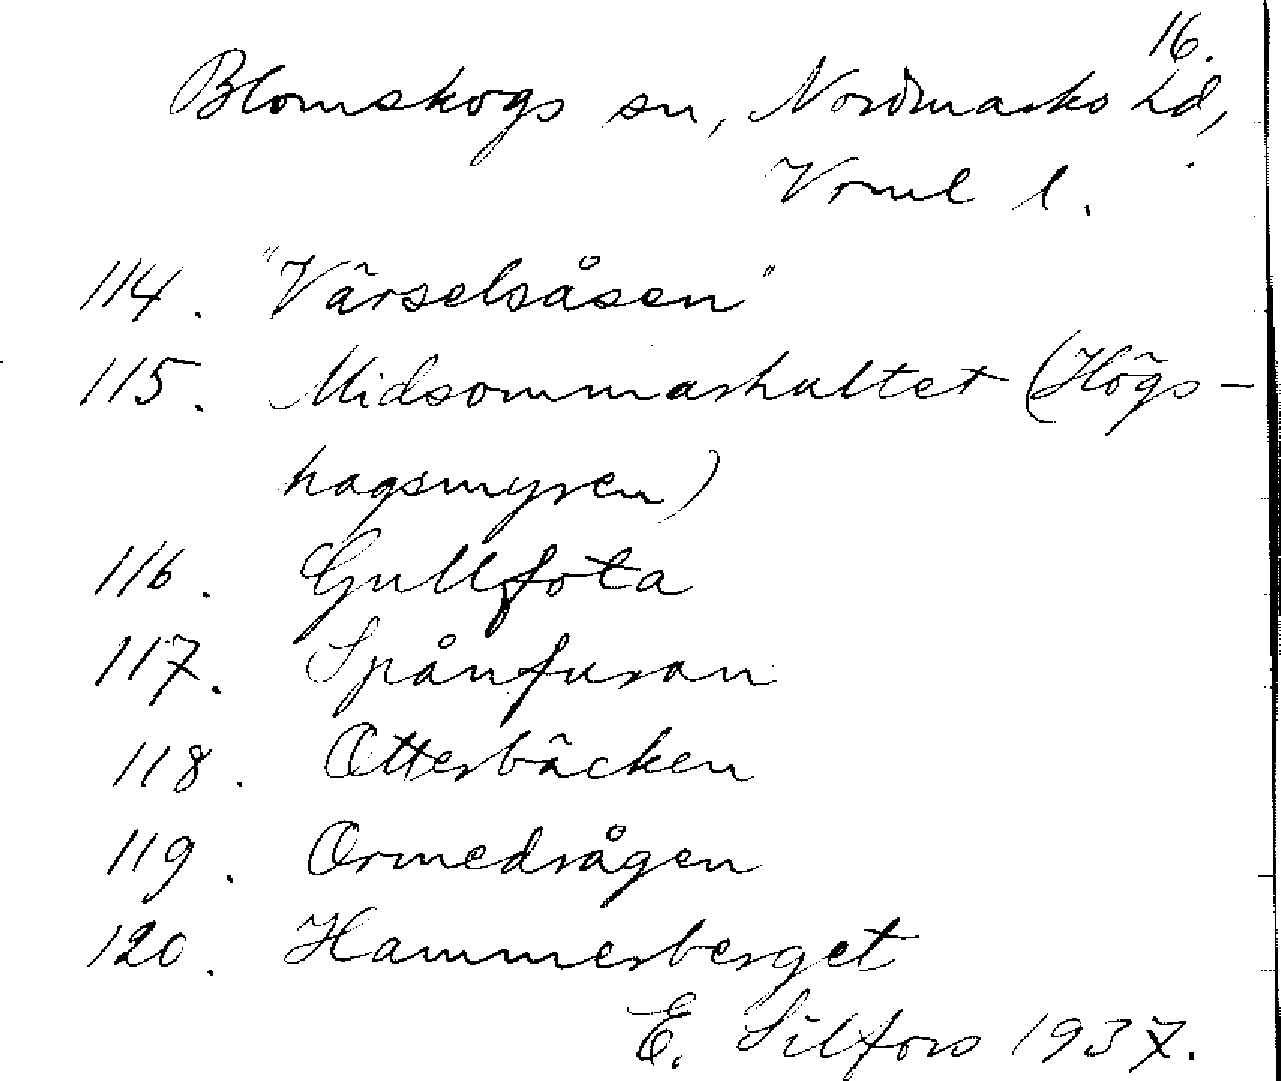 16.
Blomskogs sn, Nordmarks hd,
Vrml l.
114. "Värselsåsen"
115. Midsommarhultet (Högs-
hagsmyren)
116. Gullfota
117. Spånfuran
118. Otterbäcken
119. Ormedrågen
120. Hammerberget
E. Silfors 1937.